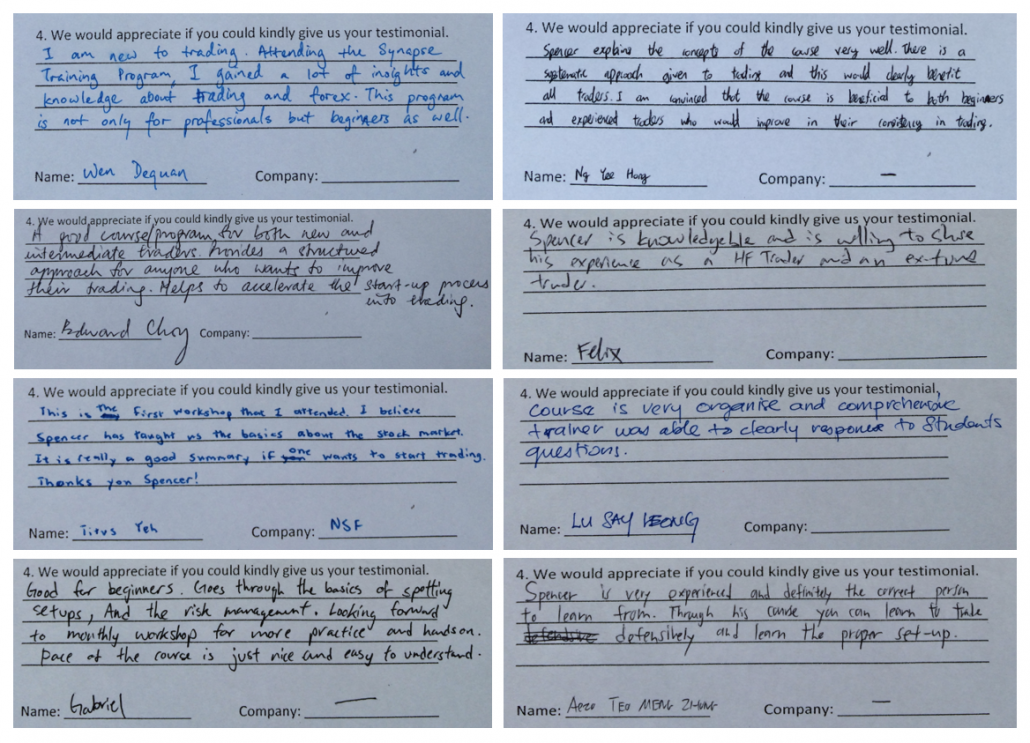 4. We would appreciate if you could kindly give us your testimonial.
I am new to trading. Attending the Synapse
Training Program, I gained a lot of insights and
knowledge about trading and forex. This program
is not only for professionals but beginners as well.
Name: Wen Dequan Company:
4. We would appreciate if you could kindly give us your testimonial.
Spencer explains the concepts of the course very well. There is a
systematic approach given to trading and this would clearly benefit
all traders. I am convinced that the course is beneficial to both beginners
and experienced traders who would improve in their consistency in trading.
Name: Ng Yee Hong Company: –
4. We would appreciate if you could kindly give us your testimonial.
A good course/program for both new and
intermediate traders. Provides a structured
approach for anyone who wants to improve
their trading. Helps to accelerate the start-up process
into trading.
Name: Edward Choy Company:
4. We would appreciate if you could kindly give us your testimonial.
Spencer is knowledgeable and is willing to share
his experience as a HF Trader and an ex-fund
trader.
Name: Felix Company:
4. We would appreciate if you could kindly give us your testimonial.
This is the first workshop that I attended. I believe
Spencer has taught us the basics about the stock market.
It is really a good summary if one wants to start trading.
Thanks you Spencer!
Name: Titus Yeh Company: NSF
4. We would appreciate if you could kindly give us your testimonial.
Course is very organise and comprehensive
trainer was able to clearly response to students
questions.
Name: LU SAY LEONG Company:
4. We would appreciate if you could kindly give us your testimonial.
Good for beginners. Goes through the basics of spotting
setups, And the risk management. Looking forward
to monthly workshop for more practice and handson.
Pace of the course is just nice and easy to understand.
Name: Gabriel Company: –
4. We would appreciate if you could kindly give us your testimonial.
Spencer is very experienced and definitely the correct person
to learn from. Through his course you can learn to trade
defensively and learn the proper set-up.
Name: TEO MENG Company: –